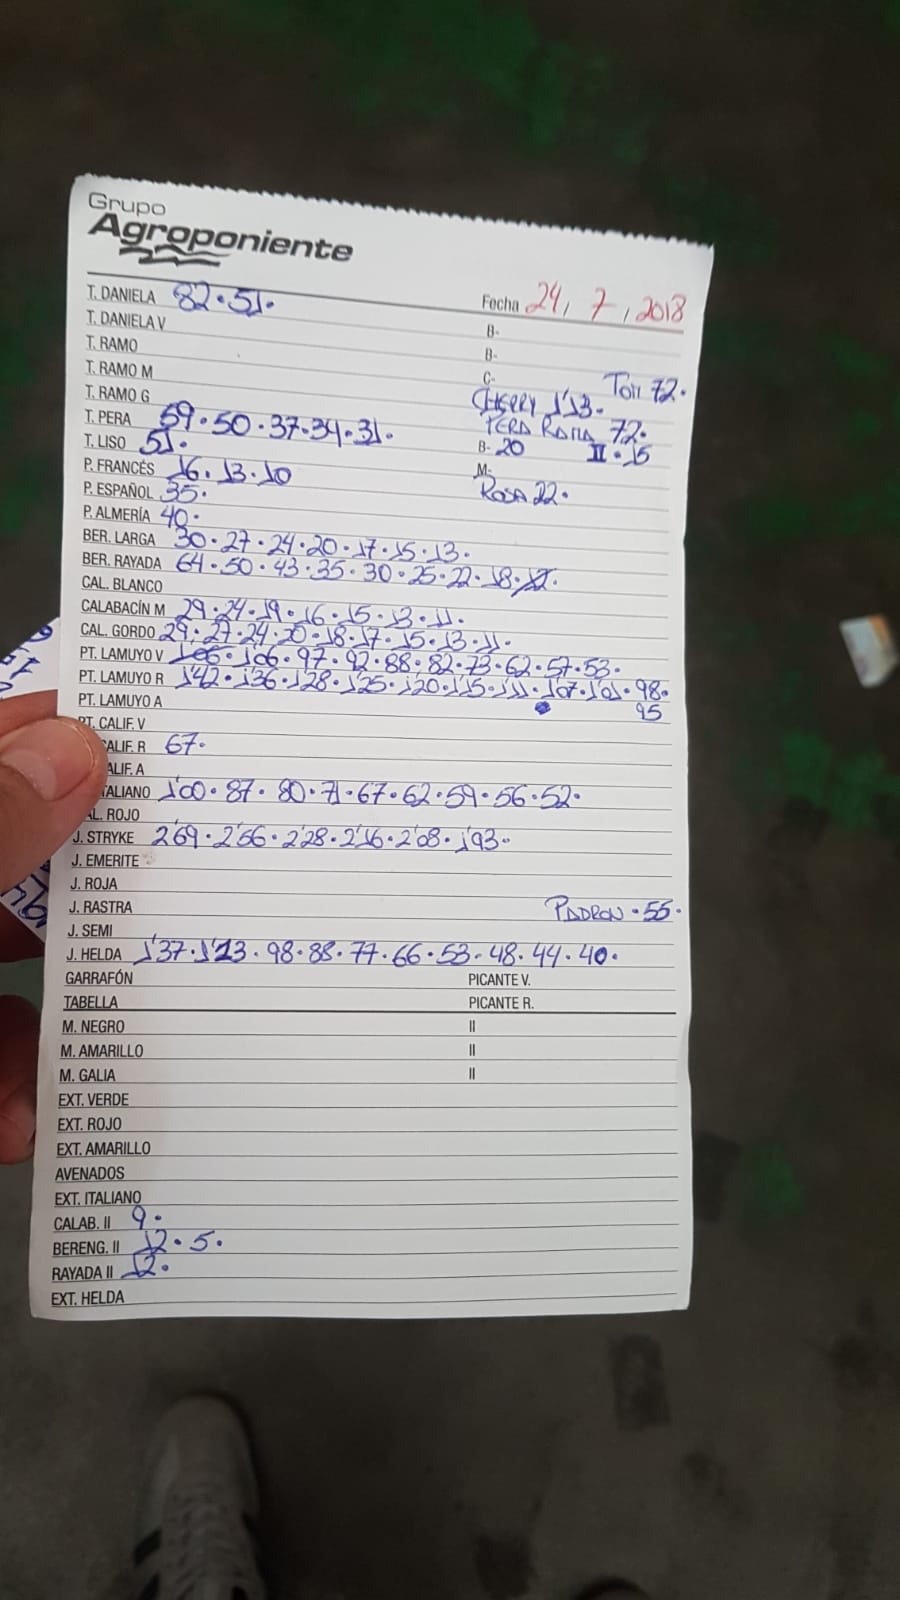 Grupo
Agroponiente
T. DANIELA 82·51·
Fecha 24, 7, 2018
T. DANELA V
B-
T. RAMO
B-
T. RAMO M
C-
Tom 72·
T. RAMO G
CHERRY 1'13·
T. PERA 59·50·37·34·31·
PERA RAMA 72·
T. LISO 51·
B- 20 II·15
P. FRANCÉS 16·13·10
M-
P. ESPAÑOL 35·
ROSA 22·
P. ALMERÍA 40·
BER. LARGA 30·27·24·20·17·15·13·
BER. RAYADA 64·50·43·35·30·25·22·18·
CAL. BLANCO
CALABACÍN M 29·24·19·16·15·13·11·
CAL. GORDO 29·27·24·20·18·17·15·13·11·
PT. LAMUYO V 1'06·1'06·97·92·88·82·73·62·57·53·
PT. LAMUYO R 1'42·1'36·1'28·1'25·1'20·1'15·1'11·1'07·1'01·98·
95
PT. LAMUYO A
PT. CALIF. V
CALIF. R 67·
ALIF. A
TALIANO 1'00·87·80·71·67·62·59·56·52·
AL. ROJO
J. STRYKE 2'69·2'56·2'28·2'16·2'08·1'93·
J. EMERITE
J. ROJA
J. RASTRA
PADRON·55·
J. SEMI
J. HELDA 1'37·1'13·98·88·77·66·53·48·44·40·
GARRAFÓN
PICANTE V.
TABELLA
PICANTE R.
M. NEGRO
II
M. AMARILLO
II
M. GALIA
II
EXT. VERDE
EXT. ROJO
EXT. AMARILLO
AVENADOS
EXT. ITALIANO
CALAB. II 9·
BERENG. II 12·5·
RAYADA II 12·
EXT. HELDA